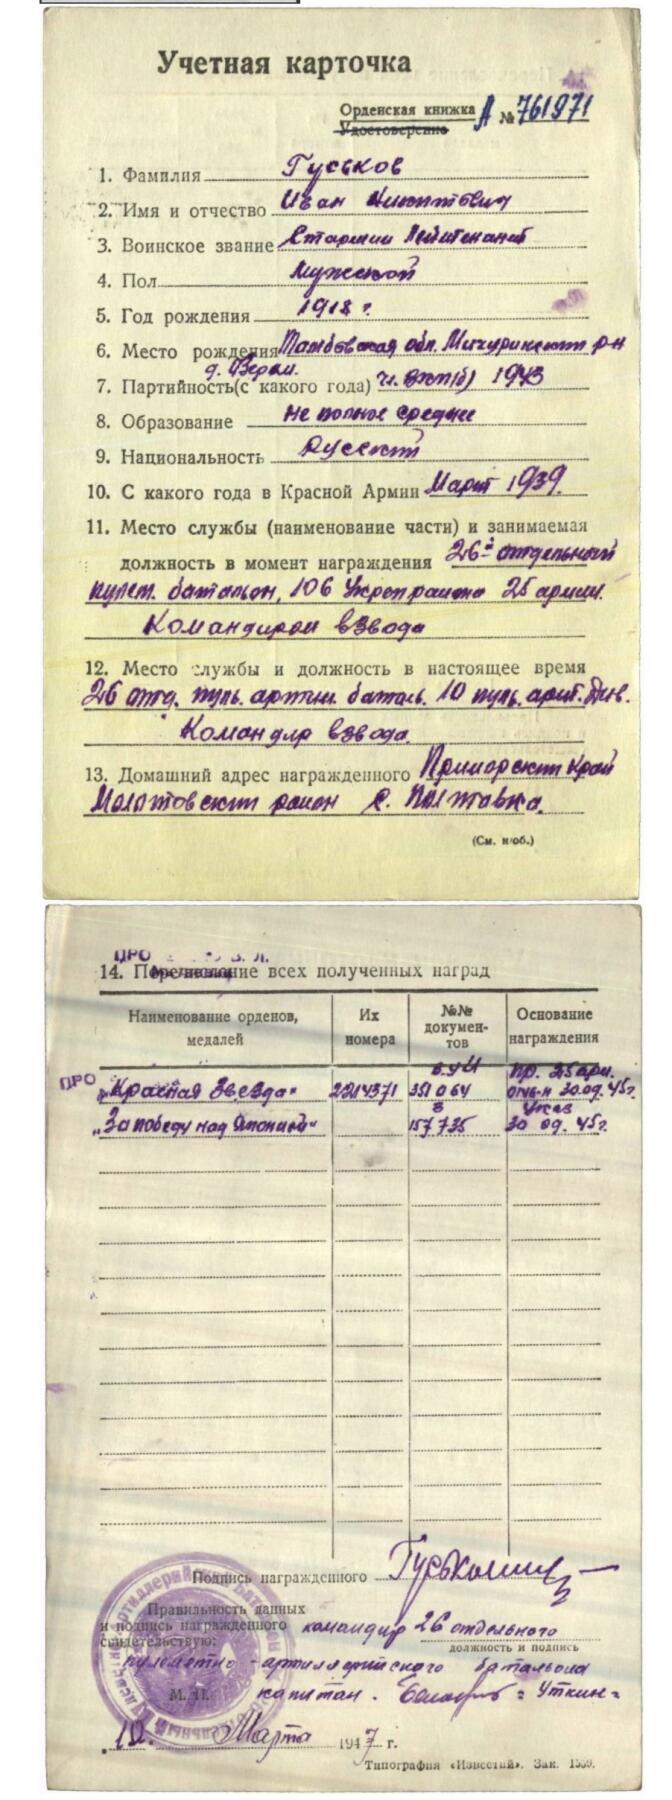 Учетная карточка
Орденская книжка А № 761971
Удостоверение
1. Фамилия Гуськов
2. Имя и отчество Иван Никитович
3. Воинское звание Старший Лейтенант
4. Пол Мужской
5. Год рождения 1918 г.
6. Место рождения Тамбовская обл. Мичуринский р-н
д.
7. Партийность(с какого года) чл. ВКП(б) 1943
8. Образование не полное средне
9. Национальность Русский
10. С какого года в Красной Армии Март 1939.
11. Место службы (наименование части) и занимаемая
должность в момент награждения 26й отдельный
пулем. батальон, 106 Укрепрайона 25 армии.
Командиром взвода
12. Место службы и должность в настоящее время
26 отд. пуль. артил. баталь. 10 пуль. арт. Див.
Командир взвода.
13. Домашний адрес награжденного Приморский Край
Молотовский район с. Полтавка.
(См. н/об.)
14. Перечисление всех полученных наград
Наименование орденов, медалей
Их номера
№№ документов
Основание награждения
"Красная Звезда" 2214371 351064 пр. 25 арм. 30.09.45г.
"За победу над Японией" 157735 Указ 30 09. 45г.
Подпись награжденного
Правильность данных
и подпись награжденного командир 26 отдельного
свидетельствую:
должность и подпись
пулеметно-артиллерийского батальона
М. П. капитан. = Уткин =
12. Марта 1947 г.
Типография «Известий». Зак. 1559.